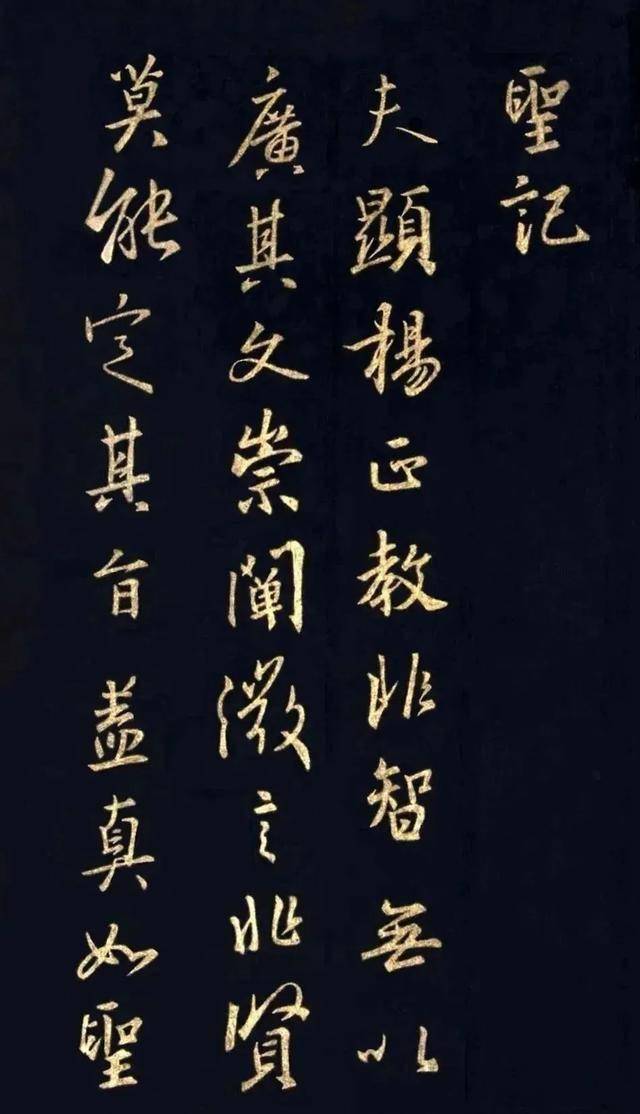 聖記
夫顯揚正教非智無以
廣其文崇闡微言非賢
莫能定其旨蓋真如聖